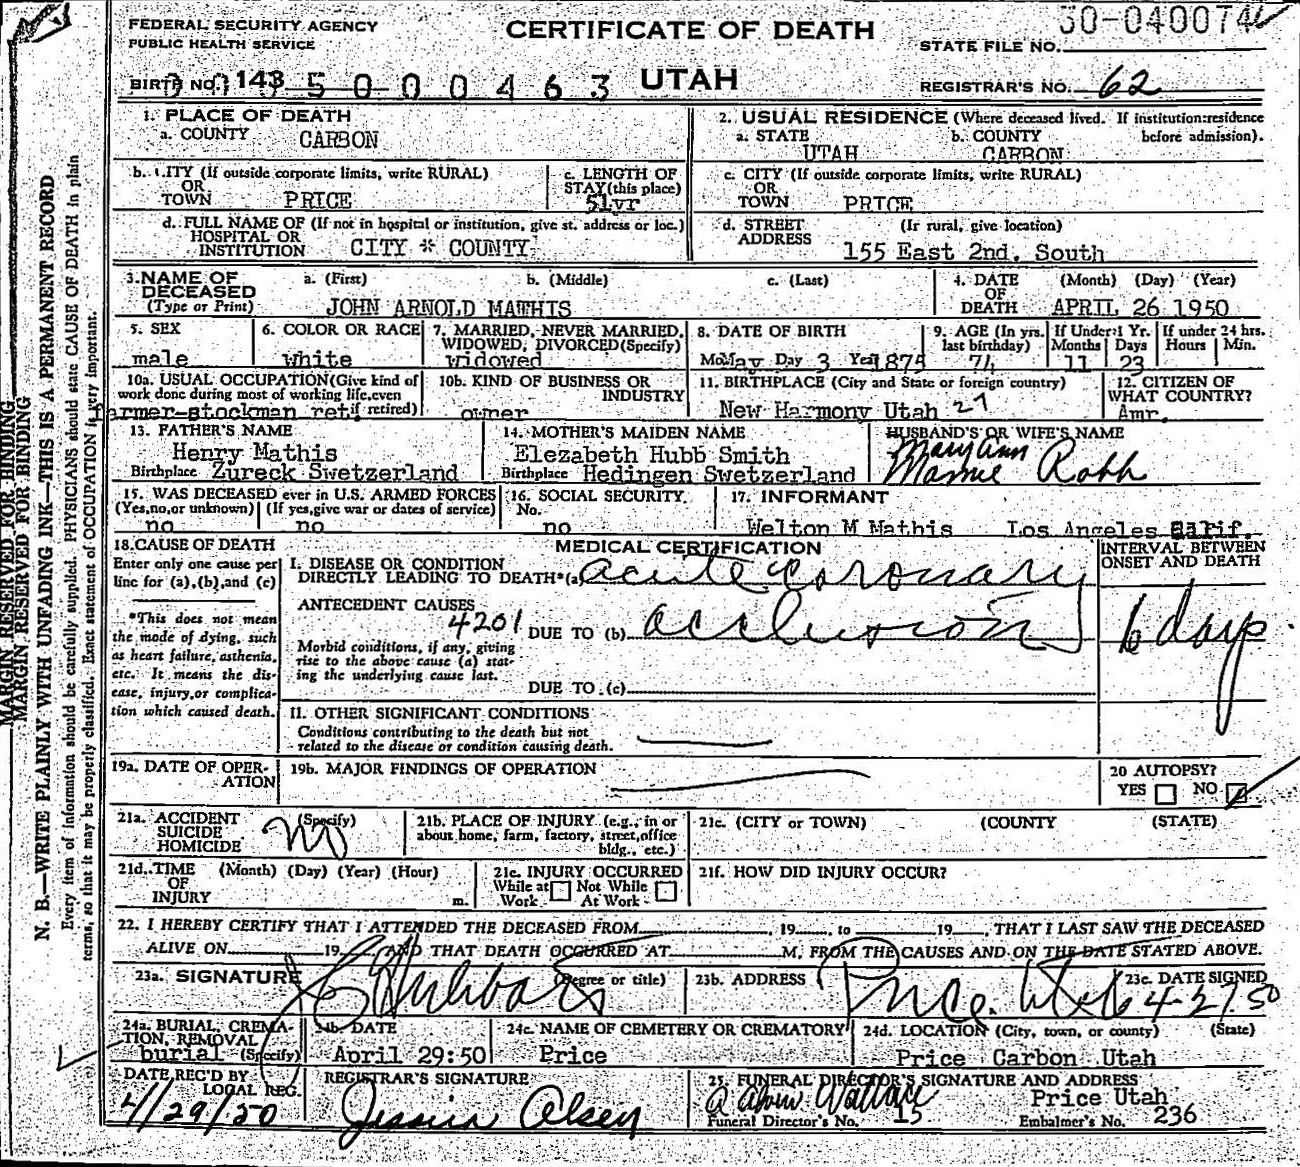 50-040074
FEDERAL SECURITY AGENCY
PUBLIC HEALTH SERVICE
CERTIFICATE OF DEATH
STATE FILE NO.
BIRTH NO. 143 5 0 0 0 4 6 3
UTAH
REGISTRAR'S NO. 62
1. PLACE OF DEATH
a. COUNTY CARBON
2. USUAL RESIDENCE (Where deceased lived. If institution:residence before admission).
a. STATE UTAH b. COUNTY CARBON
b. CITY (If outside corporate limits, write RURAL) OR TOWN PRICE
c. LENGTH OF STAY(this place) 51yr
c. CITY (If outside corporate limits, write RURAL) OR TOWN PRICE
d. FULL NAME OF (If not in hospital or institution, give st. address or loc.) HOSPITAL OR INSTITUTION CITY * COUNTY
d. STREET ADDRESS (If rural, give location)
155 East 2nd. South
3.NAME OF DECEASED (Type or Print) a. (First) b. (Middle) c. (Last)
JOHN ARNOLD MATHIS
4. DATE OF DEATH (Month) (Day) (Year)
APRIL 26 1950
5. SEX male
6. COLOR OR RACE white
7. MARRIED, NEVER MARRIED, WIDOWED, DIVORCED(Specify) widowed
8. DATE OF BIRTH
May Day 3 Year 1875
9. AGE (In yrs. last birthday) 74
If Under 1 Yr. Months 11 Days 23
If under 24 hrs. Hours Min.
10a. USUAL OCCUPATION(Give kind of work done during most of working life,even if retired)
armer-stockman ret.
10b. KIND OF BUSINESS OR INDUSTRY
owner
11. BIRTHPLACE (City and State or foreign country)
New Harmony Utah 27
12. CITIZEN OF WHAT COUNTRY?
Amr.
13. FATHER'S NAME
Henry Mathis
Birthplace Zureck Swetzerland
14. MOTHER'S MAIDEN NAME
Elezabeth Hubb Smith
Birthplace Hedingen Swetzerland
HUSBAND'S OR WIFE'S NAME
Mary Ann
Mamie Robb
15. WAS DECEASED ever in U.S. ARMED FORCES
(Yes,no,or unknown) (If yes,give war or dates of service)
no no
16. SOCIAL SECURITY No.
no
17. INFORMANT
Welton M Mathis Los Angeles Calif.
18.CAUSE OF DEATH
Enter only one cause per line for (a),(b),and (c)
*This does not mean the mode of dying, such as heart failure, asthenia, etc. It means the disease, injury,or complication which caused death.
MEDICAL CERTIFICATION
INTERVAL BETWEEN ONSET AND DEATH
I. DISEASE OR CONDITION DIRECTLY LEADING TO DEATH*(a) acute coronary
ANTECEDENT CAUSES
4201 DUE TO (b) occlusion
6 days.
Morbid conditions, if any, giving rise to the above cause (a) stating the underlying cause last.
DUE TO (c)
II. OTHER SIGNIFICANT CONDITIONS
Conditions contributing to the death but not related to the disease or condition causing death.
19a. DATE OF OPERATION
19b. MAJOR FINDINGS OF OPERATION
20 AUTOPSY?
YES NO
21a. ACCIDENT SUICIDE HOMICIDE (Specify) no
21b. PLACE OF INJURY (e.g., in or about home, farm, factory, street,office bldg., etc.)
21c. (CITY or TOWN) (COUNTY) (STATE)
21d. TIME OF INJURY (Month) (Day) (Year) (Hour) m.
21e. INJURY OCCURRED
While at Work Not While At Work
21f. HOW DID INJURY OCCUR?
22. I HEREBY CERTIFY THAT I ATTENDED THE DECEASED FROM 19 , to 19 , THAT I LAST SAW THE DECEASED
ALIVE ON 19 , AND THAT DEATH OCCURRED AT M, FROM THE CAUSES AND ON THE DATE STATED ABOVE.
23a. SIGNATURE (Degree or title)
23b. ADDRESS Price. Utah
23c. DATE SIGNED 4-27-50
24a. BURIAL, CREMATION, REMOVAL (Specify) burial
24b. DATE
April 29:50
24c. NAME OF CEMETERY OR CREMATORY
Price
24d. LOCATION (City, town, or county) (State)
Price Carbon Utah
DATE REC'D BY LOCAL REG.
4/29/50
REGISTRAR'S SIGNATURE
Jessica Olsen
25. FUNERAL DIRECTOR'S SIGNATURE AND ADDRESS
Wallace Price Utah
Funeral Director's No. 15 Embalmer's No. 236
MARGIN RESERVED FOR BINDING
MARGIN RESERVED FOR BINDING
N. B.—WRITE PLAINLY WITH UNFADING INK—THIS IS A PERMANENT RECORD
Every item of information should be carefully supplied. PHYSICIANS should state CAUSE OF DEATH in plain
terms, so that it may be properly classified. Exact statement of OCCUPATION is very important.